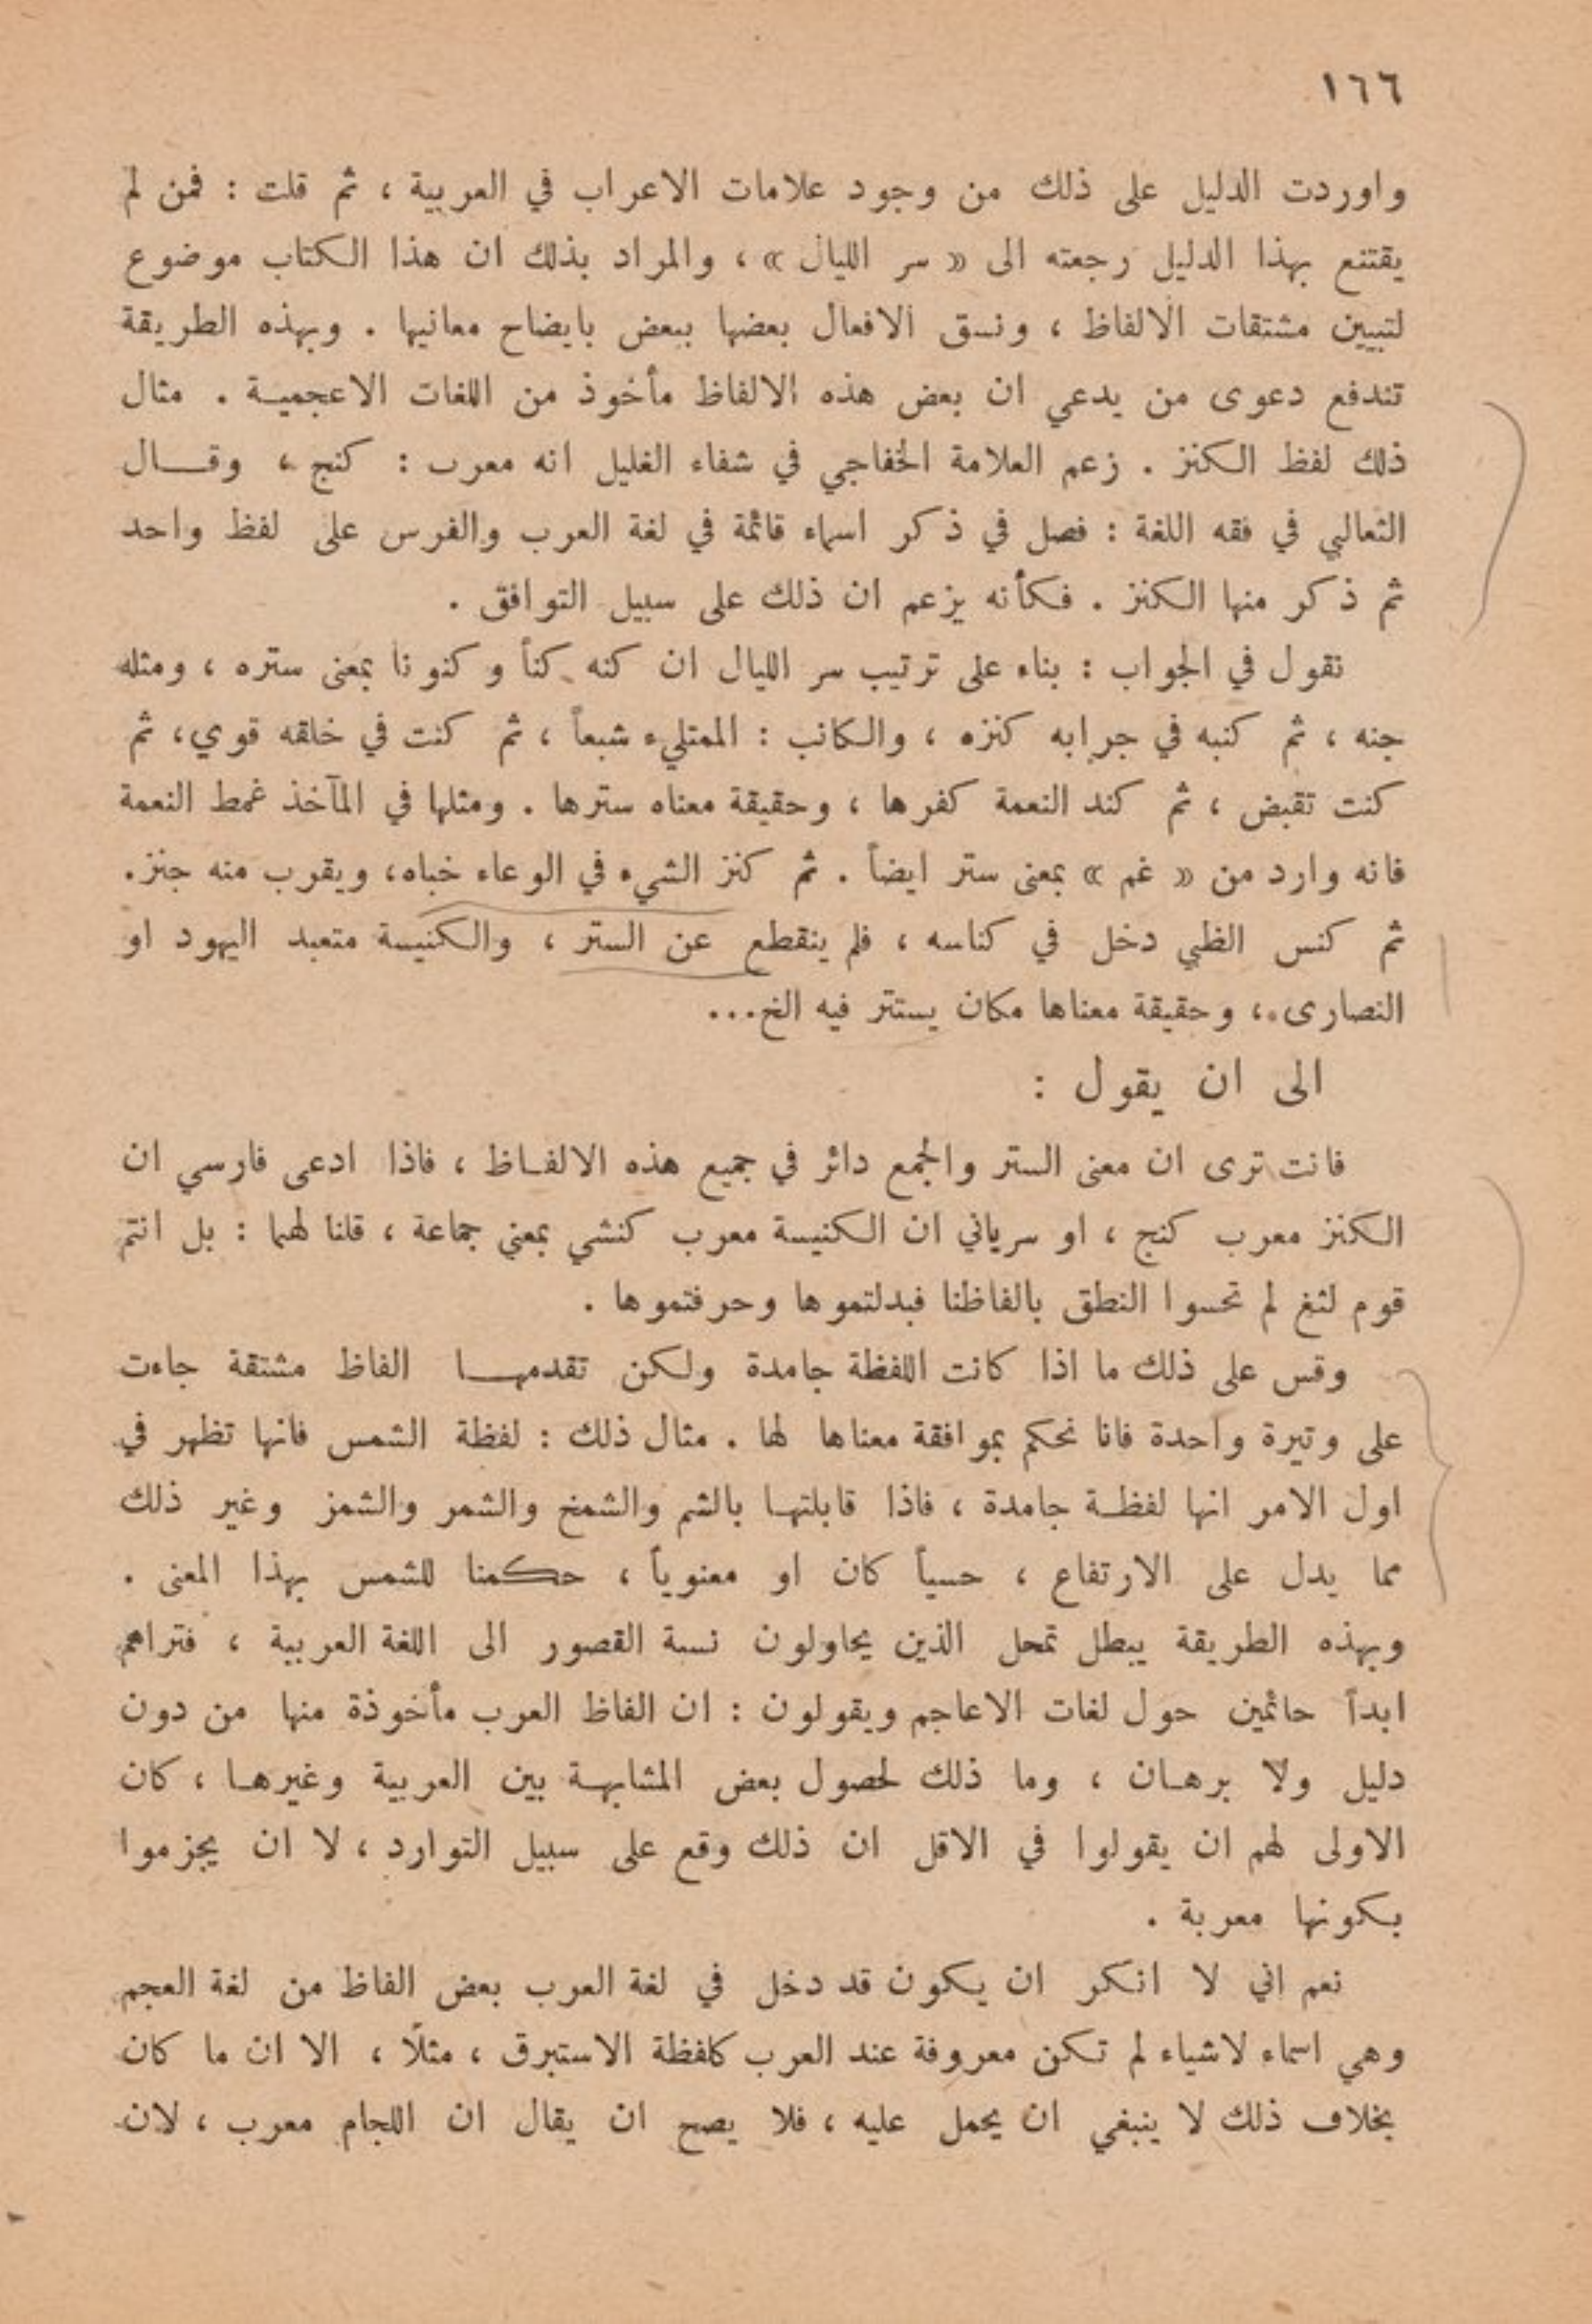 ١٦٦
واوردت الدليل على ذلك من وجود علامات الاعراب في العربية ، ثم قلت : فمن لم
يقتنع بهذا الدليل رجعته الى « سر الليال » ، والمراد بذلك ان هذا الكتاب موضوع
لتبيين مشتقات الالفاظ ، ونسق الافعال بعضها ببعض بايضاح معانيها . وبهذه الطريقة
تندفع دعوى من يدعي ان بعض هذه الالفاظ مأخوذ من اللغات الاعجمية . مثال
ذلك لفظ الكنز . زعم العلامة الخفاجي في شفاء الغليل انه معرب : كنج ، وقال
الثعالبي في فقه اللغة : فصل في ذكر اسماء قائمة في لغة العرب والفرس على لفظ واحد
ثم ذكر منها الكنز . فكأنه يزعم ان ذلك على سبيل التوافق .
نقول في الجواب : بناء على ترتيب سر الليال ان كنه كناً وكنونا بمعنى ستره ، ومثله
جنه ، ثم كنبه في جرابه كنزه ، والكانب : الممتليء شبعاً ، ثم كنت في خلقه قوي، ثم
كنت تقبض ، ثم كند النعمة كفرها ، وحقيقة معناه سترها . ومثلها في المآخذ غمط النعمة
فانه وارد من « غم » بمعنى ستر ايضاً . ثم كنز الشيء في الوعاء خباه، ويقرب منه جنز.
ثم كنس الظبي دخل في كناسه ، فلم ينقطع عن الستر ، والكنيسة متعبد اليهود او
النصارى ، وحقيقة معناها مكان يستتر فيه الخ...
الى ان يقول :
فانت ترى ان معنى الستر والجمع دائر في جميع هذه الالفاظ ، فاذا ادعى فارسي ان
الكنز معرب كنج ، او سرياني ان الكنيسة معرب كنشي بمعني جماعة ، قلنا لهما : بل انتم
قوم لثغ لم تحسوا النطق بالفاظنا فبدلتموها وحرفتموها .
وقس على ذلك ما اذا كانت اللفظة جامدة ولكن تقدمها الفاظ مشتقة جاءت
على وتيرة واحدة فانا نحكم بموافقة معناها لها . مثال ذلك : لفظة الشمس فانها تظهر في
اول الامر انها لفظة جامدة ، فاذا قابلتها بالشم والشمخ والشمر والشمز وغير ذلك
مما يدل على الارتفاع ، حسياً كان او معنوياً ، حكمنا للشمس بهذا المعنى .
وبهذه الطريقة يبطل تمحل الذين يحاولون نسبة القصور الى اللغة العربية ، فتراهم
ابداً حائمين حول لغات الاعاجم ويقولون : ان الفاظ العرب مأخوذة منها من دون
دليل ولا برهان ، وما ذلك لحصول بعض المشابهة بين العربية وغيرها ، كان
الاولى لهم ان يقولوا في الاقل ان ذلك وقع على سبيل التوارد ، لا ان يجزموا
بكونها معربة .
نعم اني لا انكر ان يكون قد دخل في لغة العرب بعض الفاظ من لغة العجم
وهي اسماء لاشياء لم تكن معروفة عند العرب كلفظة الاستبرق ، مثلًا ، الا ان ما كان
بخلاف ذلك لا ينبغي ان يحمل عليه ، فلا يصح ان يقال ان اللجام معرب ، لان